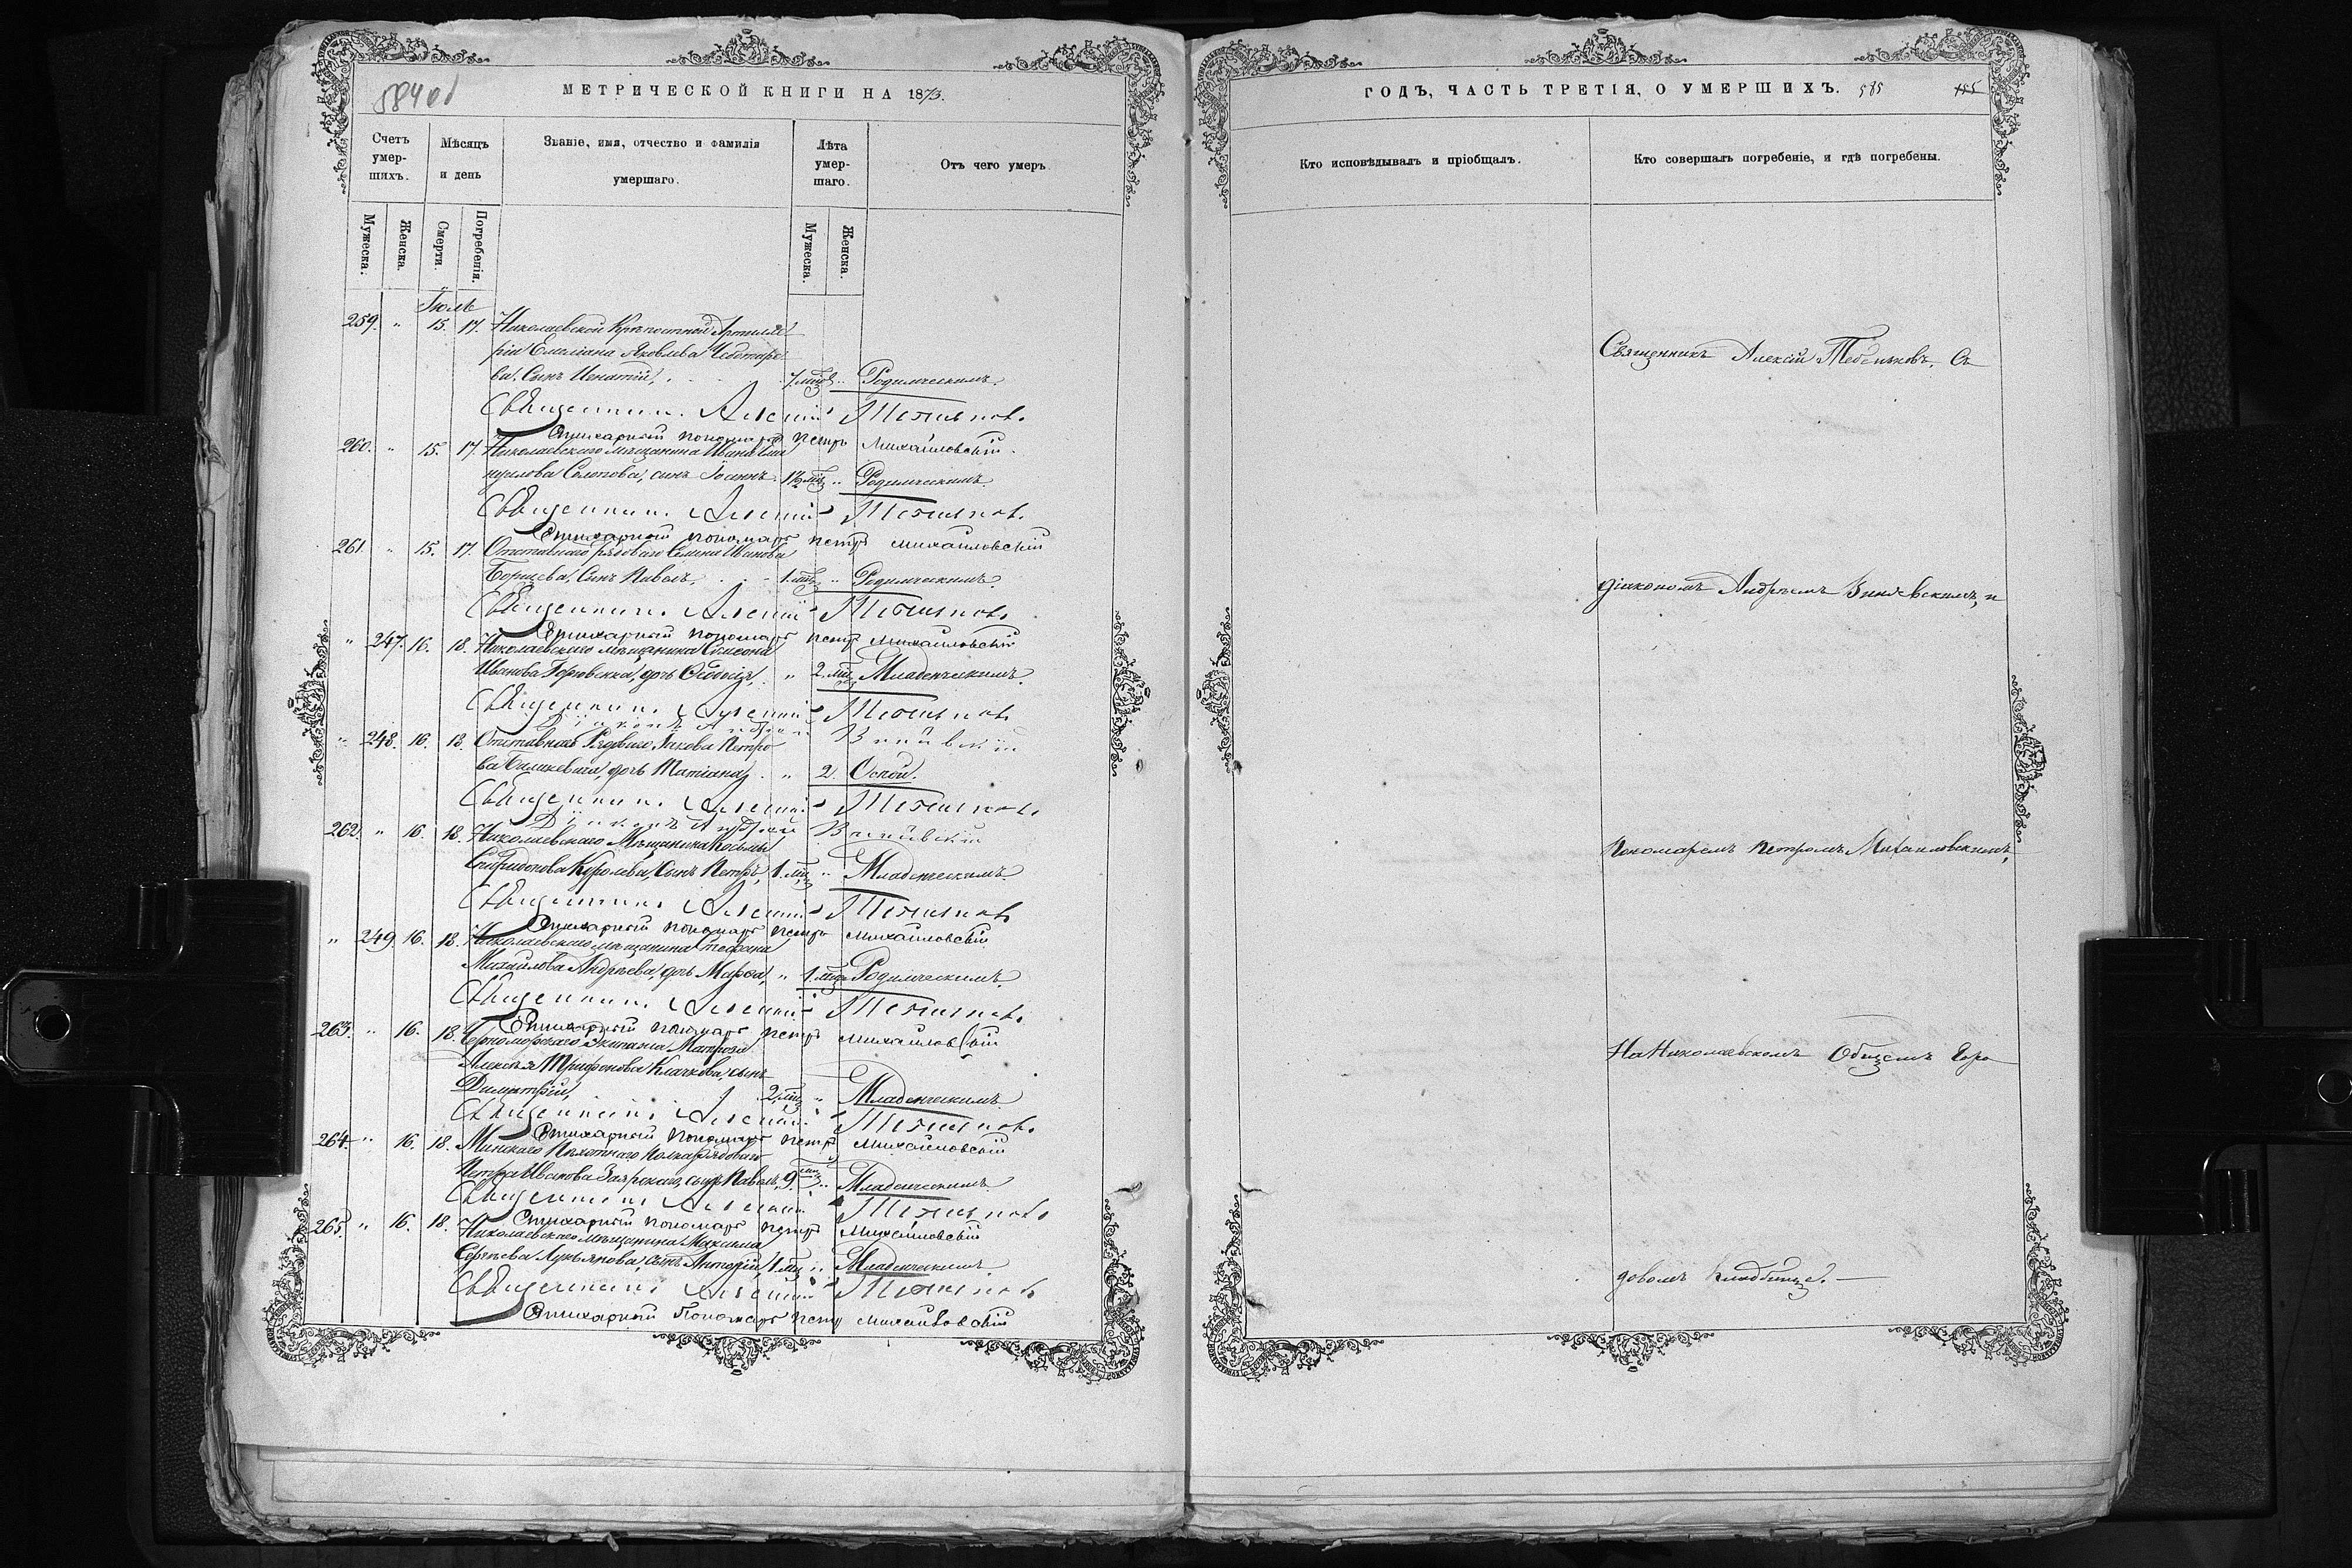 584 об
МЕТРИЧЕСКОЙ КНИГИ НА 1873.
Счетъ умер-шихъ.
Мѣсяцъ и день
Званіе, имя, отчество и фамилія умершаго.
Лѣта умер-шаго.
Отъ чего умеръ
Мужеска.
Женска.
Смерти.
Погребенія.
Мужеска.
Женска.
Іюль
259. " 15. 17. Николаевской Крѣпостной Артилле
ріи Емеліана Яковлева Чеботаре
ва, Сынъ Игнатій, 7. мѣс " Родимческимъ.
Священникъ Алексій
Стихарный пономарь Петръ Михайловскій.
260. " 15. 17. Николаевскаго Мѣщанина Ивана
сынъ Іоаннъ 1½ мѣс " Родимческимъ.
Священникъ Алексій
Стихарный пономарь Петръ Михайловскій
261. " 15. 17. Отставнаго рядоваго Семена Иванова
Борщева, Сынъ Павелъ, 1. мѣс " Родимческимъ.
Священникъ Алексій
Стихарный пономарь Петръ Михайловскій
" 247. 16. 18. Николаевскаго мѣщанина Симеона
Иванова дочь Ѳеодосія, " 2. мѣс Младенческимъ.
Священникъ Алексій
Діаконъ Андрей
" 248. 16. 18. Отставнаго Рядоваго Іакова Петро
ва дочь Татіана, " 2. Оспой.
Священникъ Алексій
Діаконъ Андрей
262. " 16. 18. Николаевскаго Мѣщанина Косьмы
Спиридонова Королева, Сынъ Петръ, 1. мѣс " Младенческимъ.
Священникъ Алексій
Стихарный пономарь Петръ Михайловскій
" 249. 16. 18. Николаевскаго мѣщанина Стефана
Михайлова Андреева, дочь Марѳа, " 1. мѣс Родимческимъ.
Священникъ Алексій
Стихарный пономарь Петръ Михайловскій
263. " 16. 18. Черноморскаго Экипажа Матроса
Алексѣя Трифонова Клачкова, сынъ
Димитрій, 2. мѣс " Младенческимъ.
Священникъ Алексій
Стихарный пономарь Петръ Михайловскій
264. " 16. 18. Минскаго Пѣхотнаго Полка рядоваго
Петра Иванова сынъ Павелъ, 9. мѣс " Младенческимъ.
Священникъ Алексій
Стихарный пономарь Петръ Михайловскій
265. " 16. 18. Николаевскаго мѣщанина Максима
Сергѣева Лукьянова, сынъ Антоній, 1. мѣс " Младенческимъ
Священникъ Алексій
Стихарный Пономарь Петръ Михайловскій
ГОДЪ, ЧАСТЬ ТРЕТІЯ, О УМЕРШИХЪ. 585
Кто исповѣдывалъ и пріобщалъ.
Кто совершалъ погребеніе, и гдѣ погребены.
Священникъ Алексій Съ
діакономъ Андреемъ и
Пономаремъ Петромъ Михайловскимъ,
На Николаевскомъ Общемъ Горо
довомъ Кладбищѣ. —